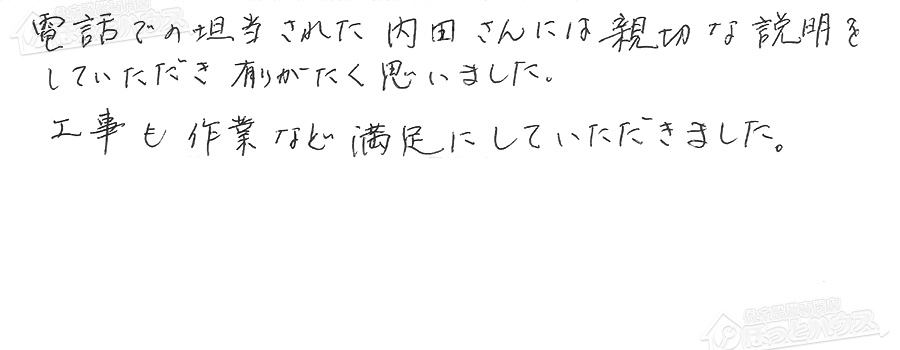 電話での担当された内田さんには親切な説明を
していただき有りがたく思いました。
工事も作業など満足にしていただきました。
住宅設備専門店
ほっとハウス